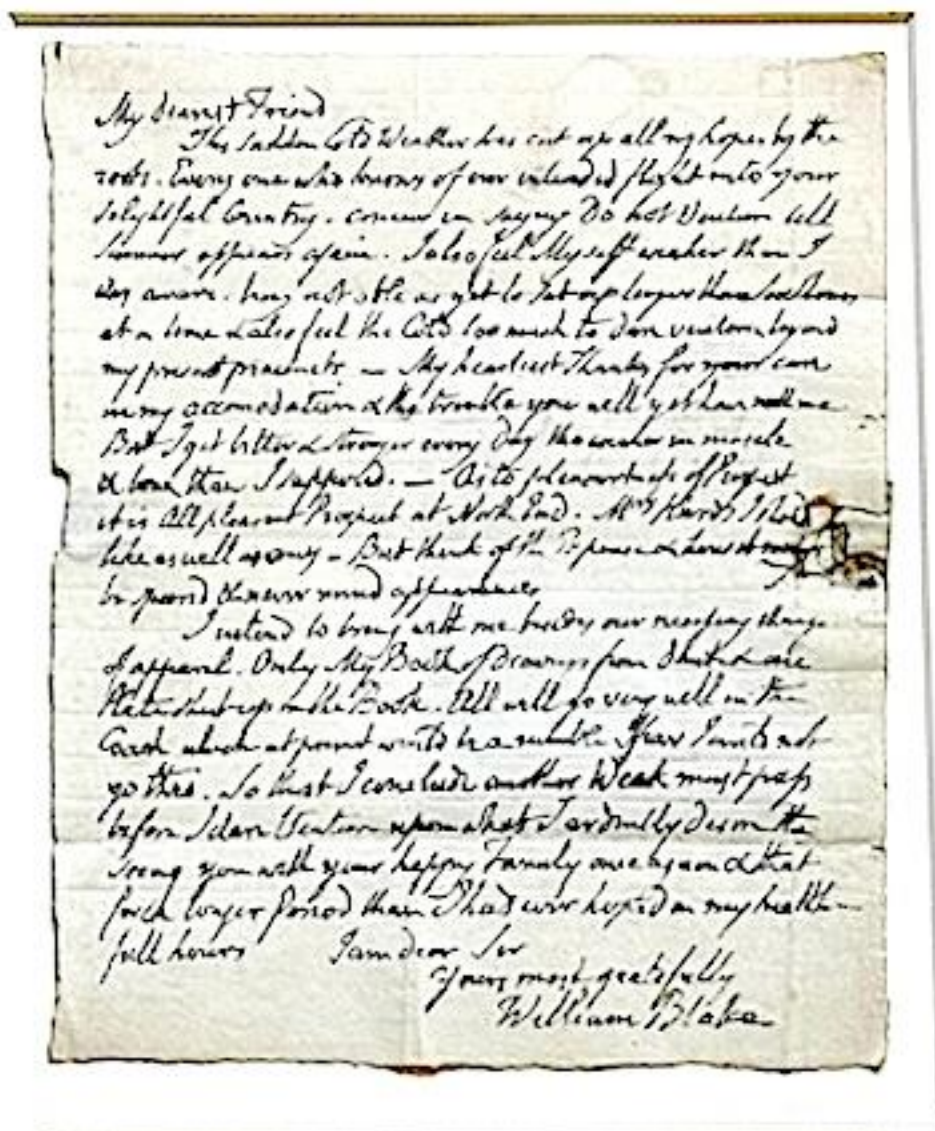 My Dearest Friend
This sudden Cold Weather has cut up all my hopes by the
roots. Every one who knows of our intended flight into your
delightful Country. concur in saying Do not Venture till
Summer appears again. I also feel Myself weaker than I
was aware. being not able as yet to sit up longer than six hours
at a time & also feel the Cold too much to dare venture beyond
my present precincts — My heartiest Thanks for your care
in my accomodation & the trouble you will yet have with me
But I get better & stronger every Day tho weaker in muscle
& bone than I supposed. — As to pleasantness of Prospect
it is All pleasant Prospect at North End. Mrs Hurds I should
like as well as any - But think of the Expense & how it may
be spared & never mind appearances
I intend to bring with me besides our necessary change
of apparel. Only My Book of Drawings from Dante & one
Plate shut up in the Book. All will go very well in the
Coach which at present would be a rumble I fear I could not
go thro. So that I conclude another Week must pass
before I dare Venture upon what I ardently desire the
seeing you with your happy Family once again & that
for a longer Period than I had ever hoped in my health
full hours I am dear Sir
Yours most gratefully
William Blake